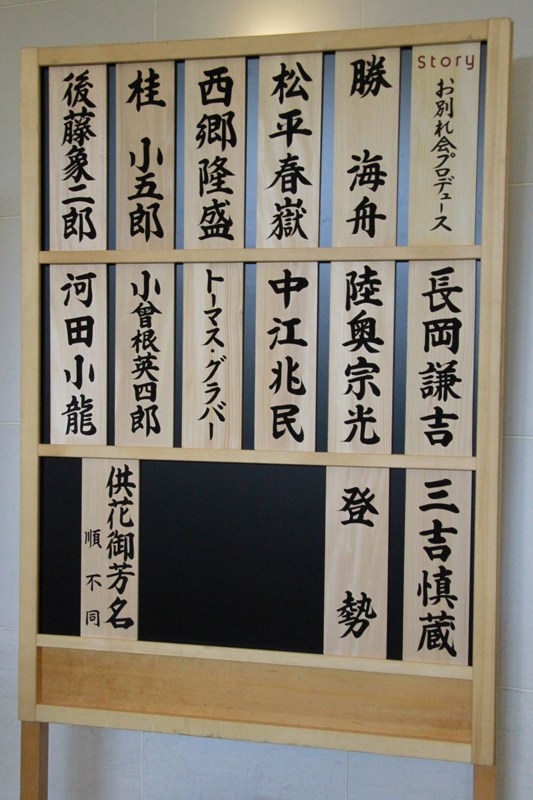 Story
お別れ会プロデュース
勝海舟
松平春嶽
西郷隆盛
桂小五郎
後藤象二郎
長岡謙吉
陸奥宗光
中江兆民
トーマス・グラバー
小曾根英四郎
河田小龍
三吉慎蔵
登勢
供花御芳名
順不同